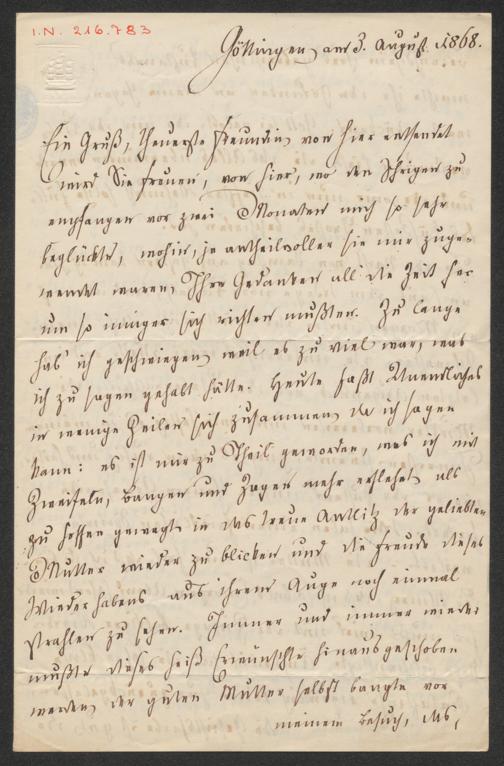 I.N. 216.783
Göttingen am 3. August 1868.
Ein Gruß, theuerste Freundin von hier entsendet
wird Sie freuen, von hier, wo den Ihrigen zu
empfangen vor zwei Monaten mich so sehr
beglückte, wohin, je antheilvoller sie mir zuge-
wendet waren, Ihre Gedanken all die Zeit her
um so inniger sich richten mußten. Zu lange
hab' ich geschwiegen, weil es zu viel war, was
ich zu sagen gehabt hätte. Heute faßt Unendliches
in wenige Zeilen sich zusammen, da ich sagen
kann: es ist mir zu Theil geworden, was ich mit
Zweifeln, Bangen und Zagen mehr erflehet als
zu hoffen gewagt, in das treue Antlitz der geliebten
Mutter wieder zu blicken und die Freude dieses
Wiederhabens aus ihrem Auge noch einmal
strahlen zu sehen. Immer und immer wieder
mußte dieses heiß Erwünschte hinausgeschoben
werden, der guten Mutter selbst bangte vor
meinem Besuch, das,